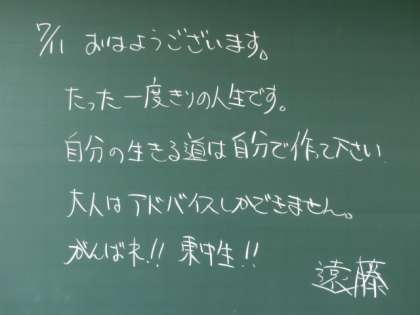 7/11 おはようございます。
たった一度きりの人生です。
自分の生きる道は自分で作って下さい
大人はアドバイスしかできません。
がんばれ!! 東中生!!
遠藤